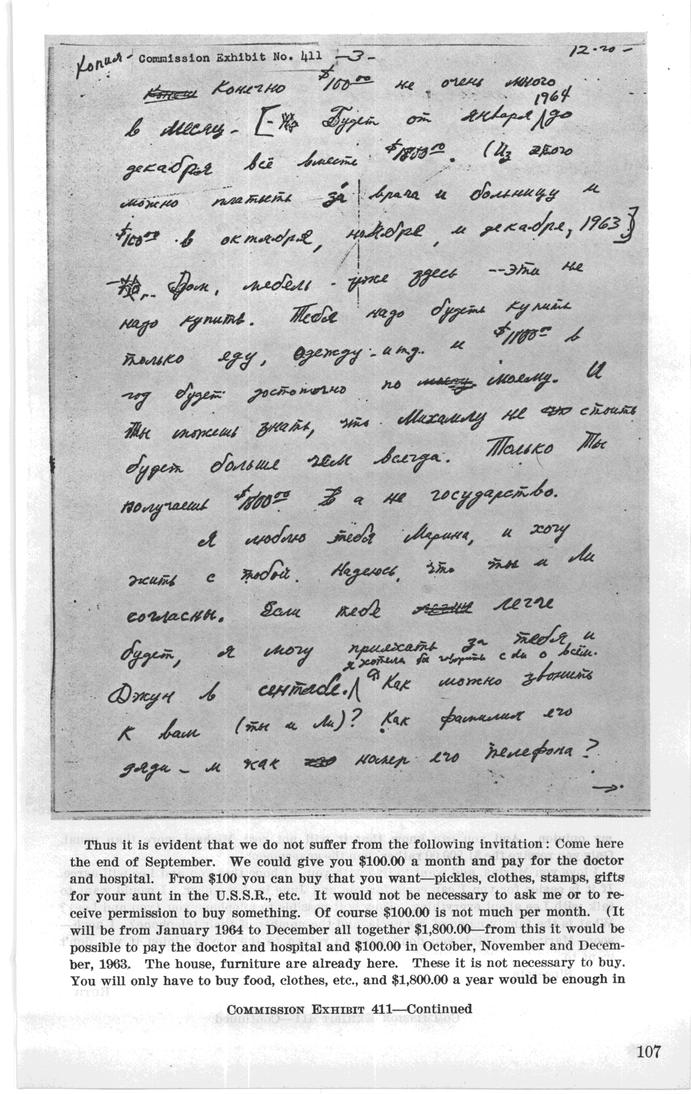 Копия - Commission Exhibit No. 411 -3- 12-20-
Конечно $100.00 не очень много
1964
в месяц - [- Будет от января до
декабря всё вместе $1800.00. (Из этого
можно платить за врача и больницу и
$100.00 в октября, ноября, и декабря, 1963)]
Дом, мебель - уже здесь -- эти не
надо купить. Тебя надо будеть купить
только еду, одежду - итд. и $1800.00 в
год будет достоточно по моему. И
Ты можешь знать, что Михаилу не стоить
будет больше чем всегда. Только Ты
получаешь $1800.00 а не государство.
Я люблю тебя Марина, и хочу
жить с тобой. Надеюсь, что ты и Ли
согласны. Если тебе легче
будет, я могу приехать за тебя и
я хотела бы говорить с Ли о всём.
Джун в сентабе. Как можно звонить
К вам (ты и Ли)? Как фамилия его
дяди - и как номер его телефона?
Thus it is evident that we do not suffer from the following invitation: Come here
the end of September. We could give you $100.00 a month and pay for the doctor
and hospital. From $100 you can buy that you want—pickles, clothes, stamps, gifts
for your aunt in the U.S.S.R., etc. It would not be necessary to ask me or to re-
ceive permission to buy something. Of course $100.00 is not much per month. (It
will be from January 1964 to December all together $1,800.00—from this it would be
possible to pay the doctor and hospital and $100.00 in October, November and Decem-
ber, 1963. The house, furniture are already here. These it is not necessary to buy.
You will only have to buy food, clothes, etc., and $1,800.00 a year would be enough in
COMMISSION EXHIBIT 411—Continued
107